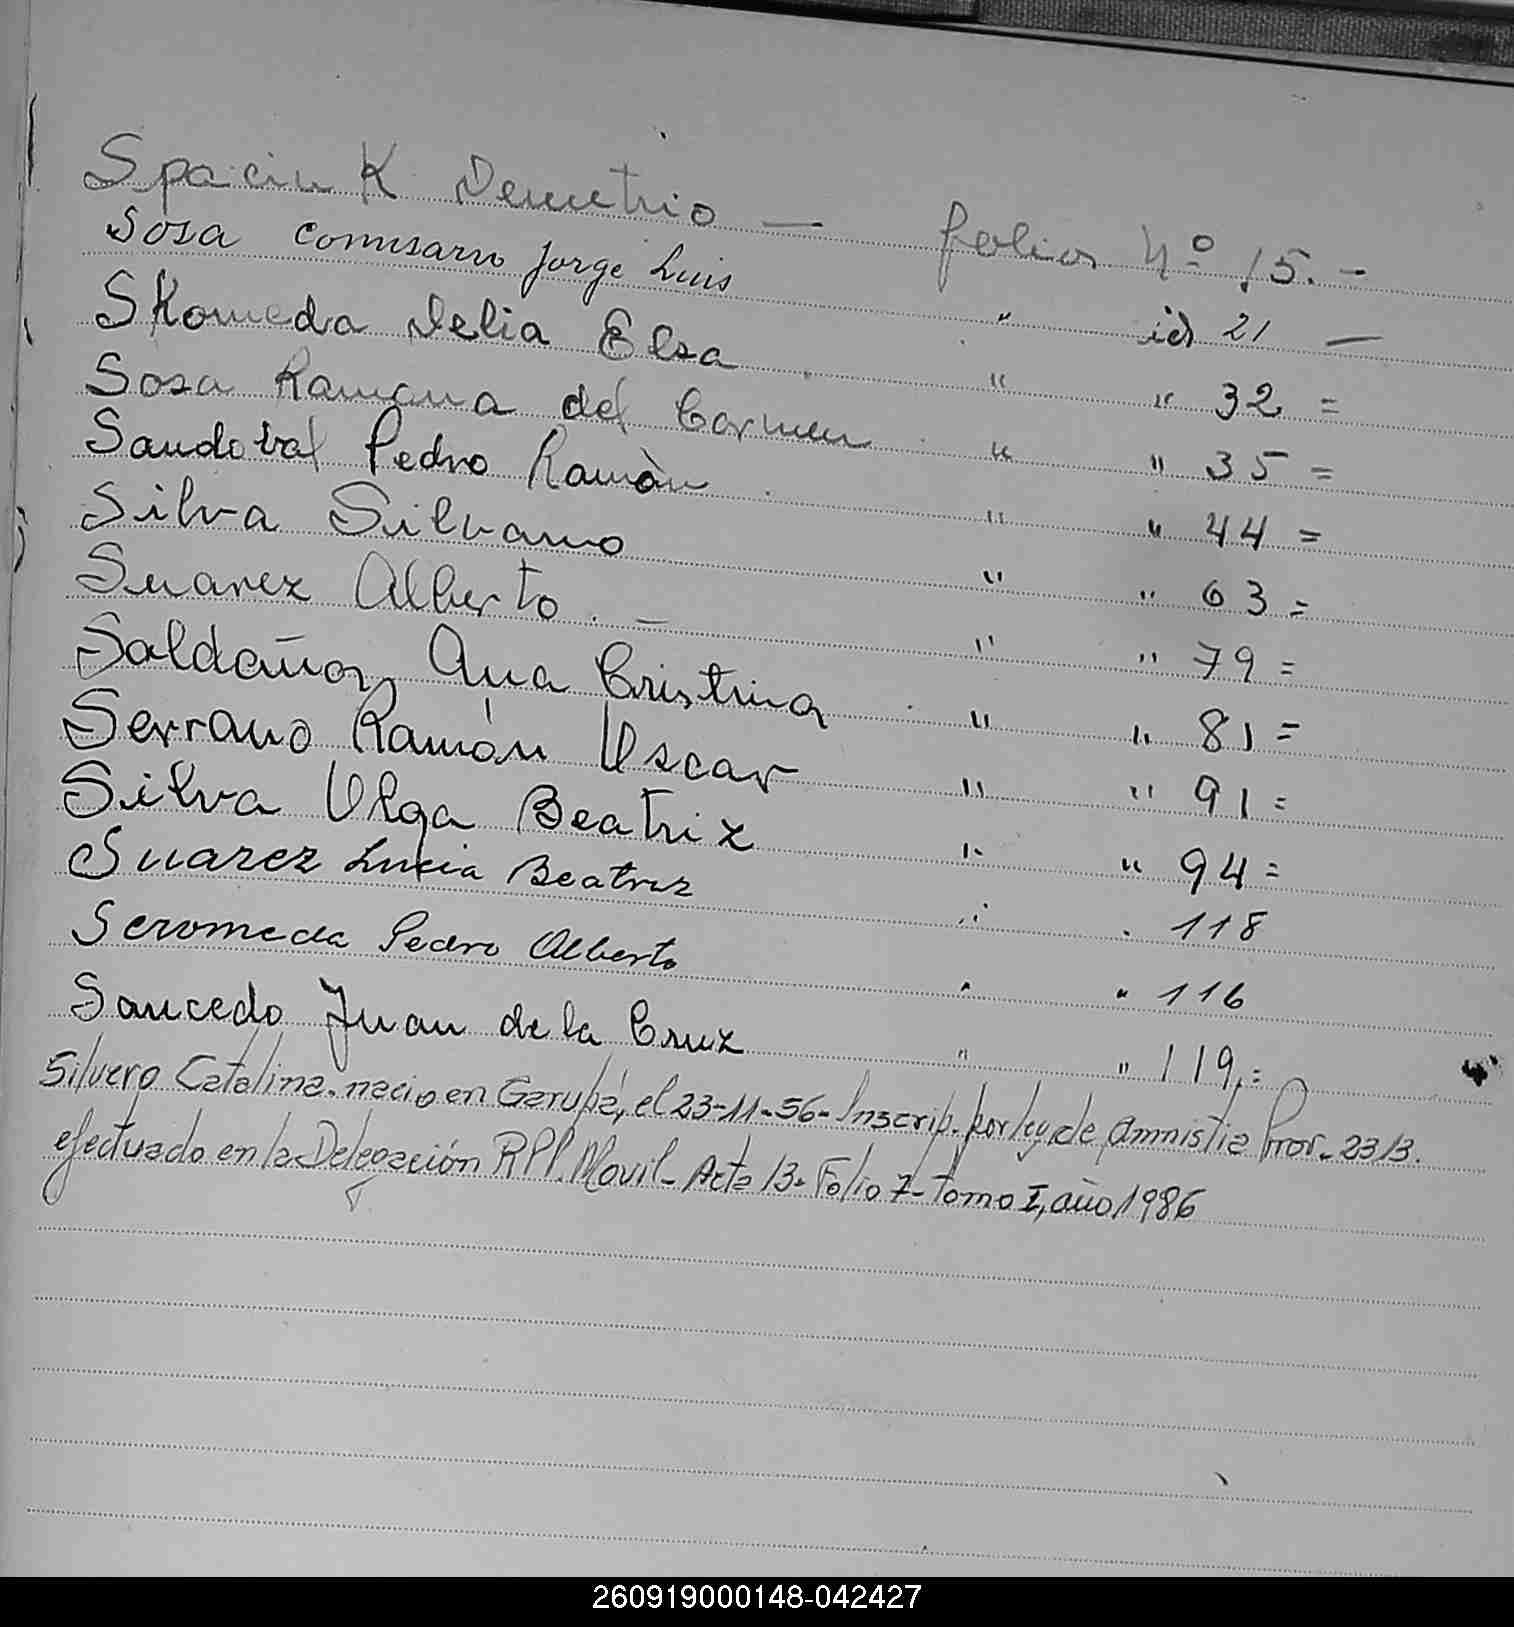 Spaciuk Demetrio — folios Nº 15.-
Sosa Comisario Jorge Luis " id 21 —
SKomeda Delia Elsa " " 32 =
Sosa Ramona del Carmen " " 35 =
Sandoval Pedro Ramòn " " 44 =
Silva Silvano " " 63 =
Suarez Alberto. — " " 79 =
Saldaña, Ana Cristina " " 81 =
Serrano Ramón Oscar " " 91 =
Silva Olga Beatriz " " 94 =
Suarez Lucia Beatriz " . 118
Scromeda Pedro Alberto " " 116
Saucedo Juan de la Cruz " " 119.=
Silvero Catalina. nacio en Garupá, el 23-11-56- Inscrip. por ley de Amnistia Prov. 2313.
efectuado en la Delegación RPP. Movil- Acta 13- Folio 7- Tomo I, año 1986
260919000148-042427